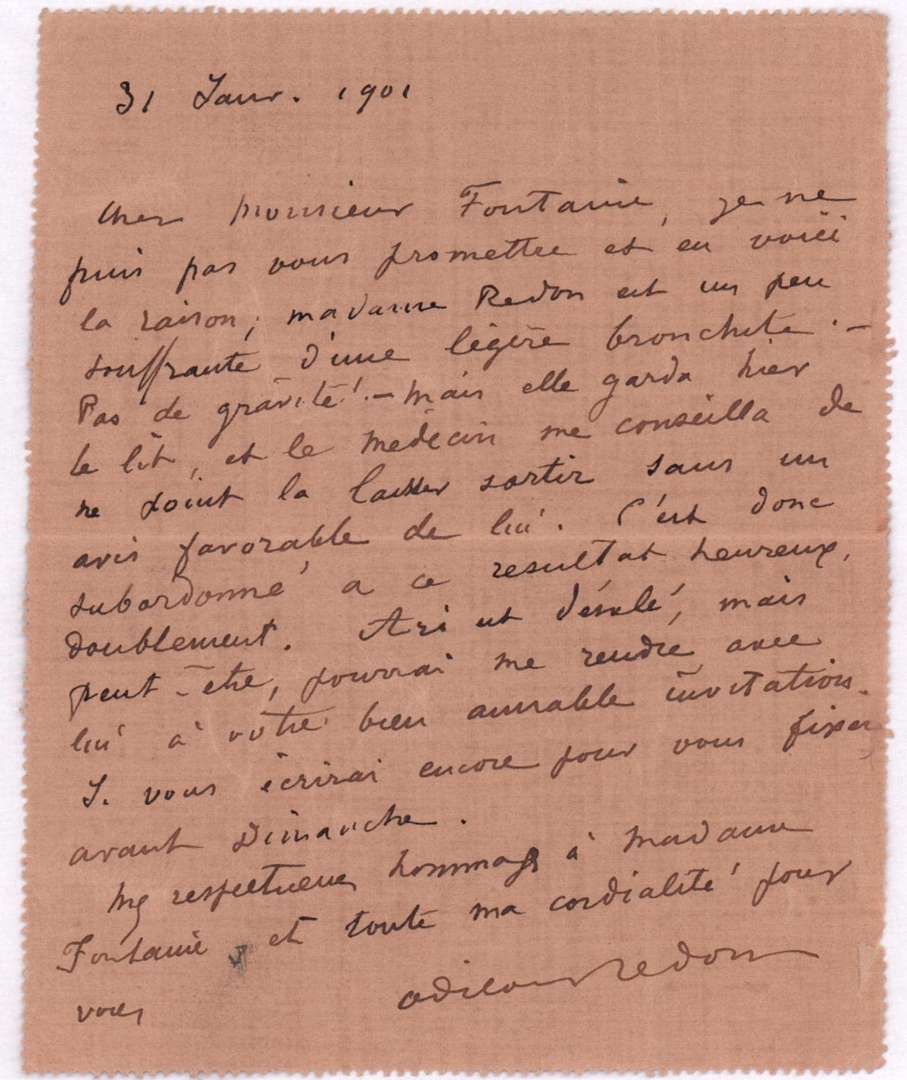 31 Janv. 1901
Cher Monsieur Fontaine, je ne
puis pas vous promettre et en voici
la raison; madame Redon est un peu
souffrante d'une légère bronchite. —
Pas de gravité! — Mais elle garda hier
le lit, et le médecin me conseilla de
ne point la laisser sortir sans un
avis favorable de lui. C'est donc
subordonné a ce resultat heureux,
doublement. Ari est désolé, mais
peut-être, pourrai me rendre avec
lui à votre bien aimable invitation.
Je vous écrirai encore pour vous fixer
avant Dimanche.
Mes respectueux hommages à Madame
Fontaine et toute ma cordialité pour
vous
Odilon Redon